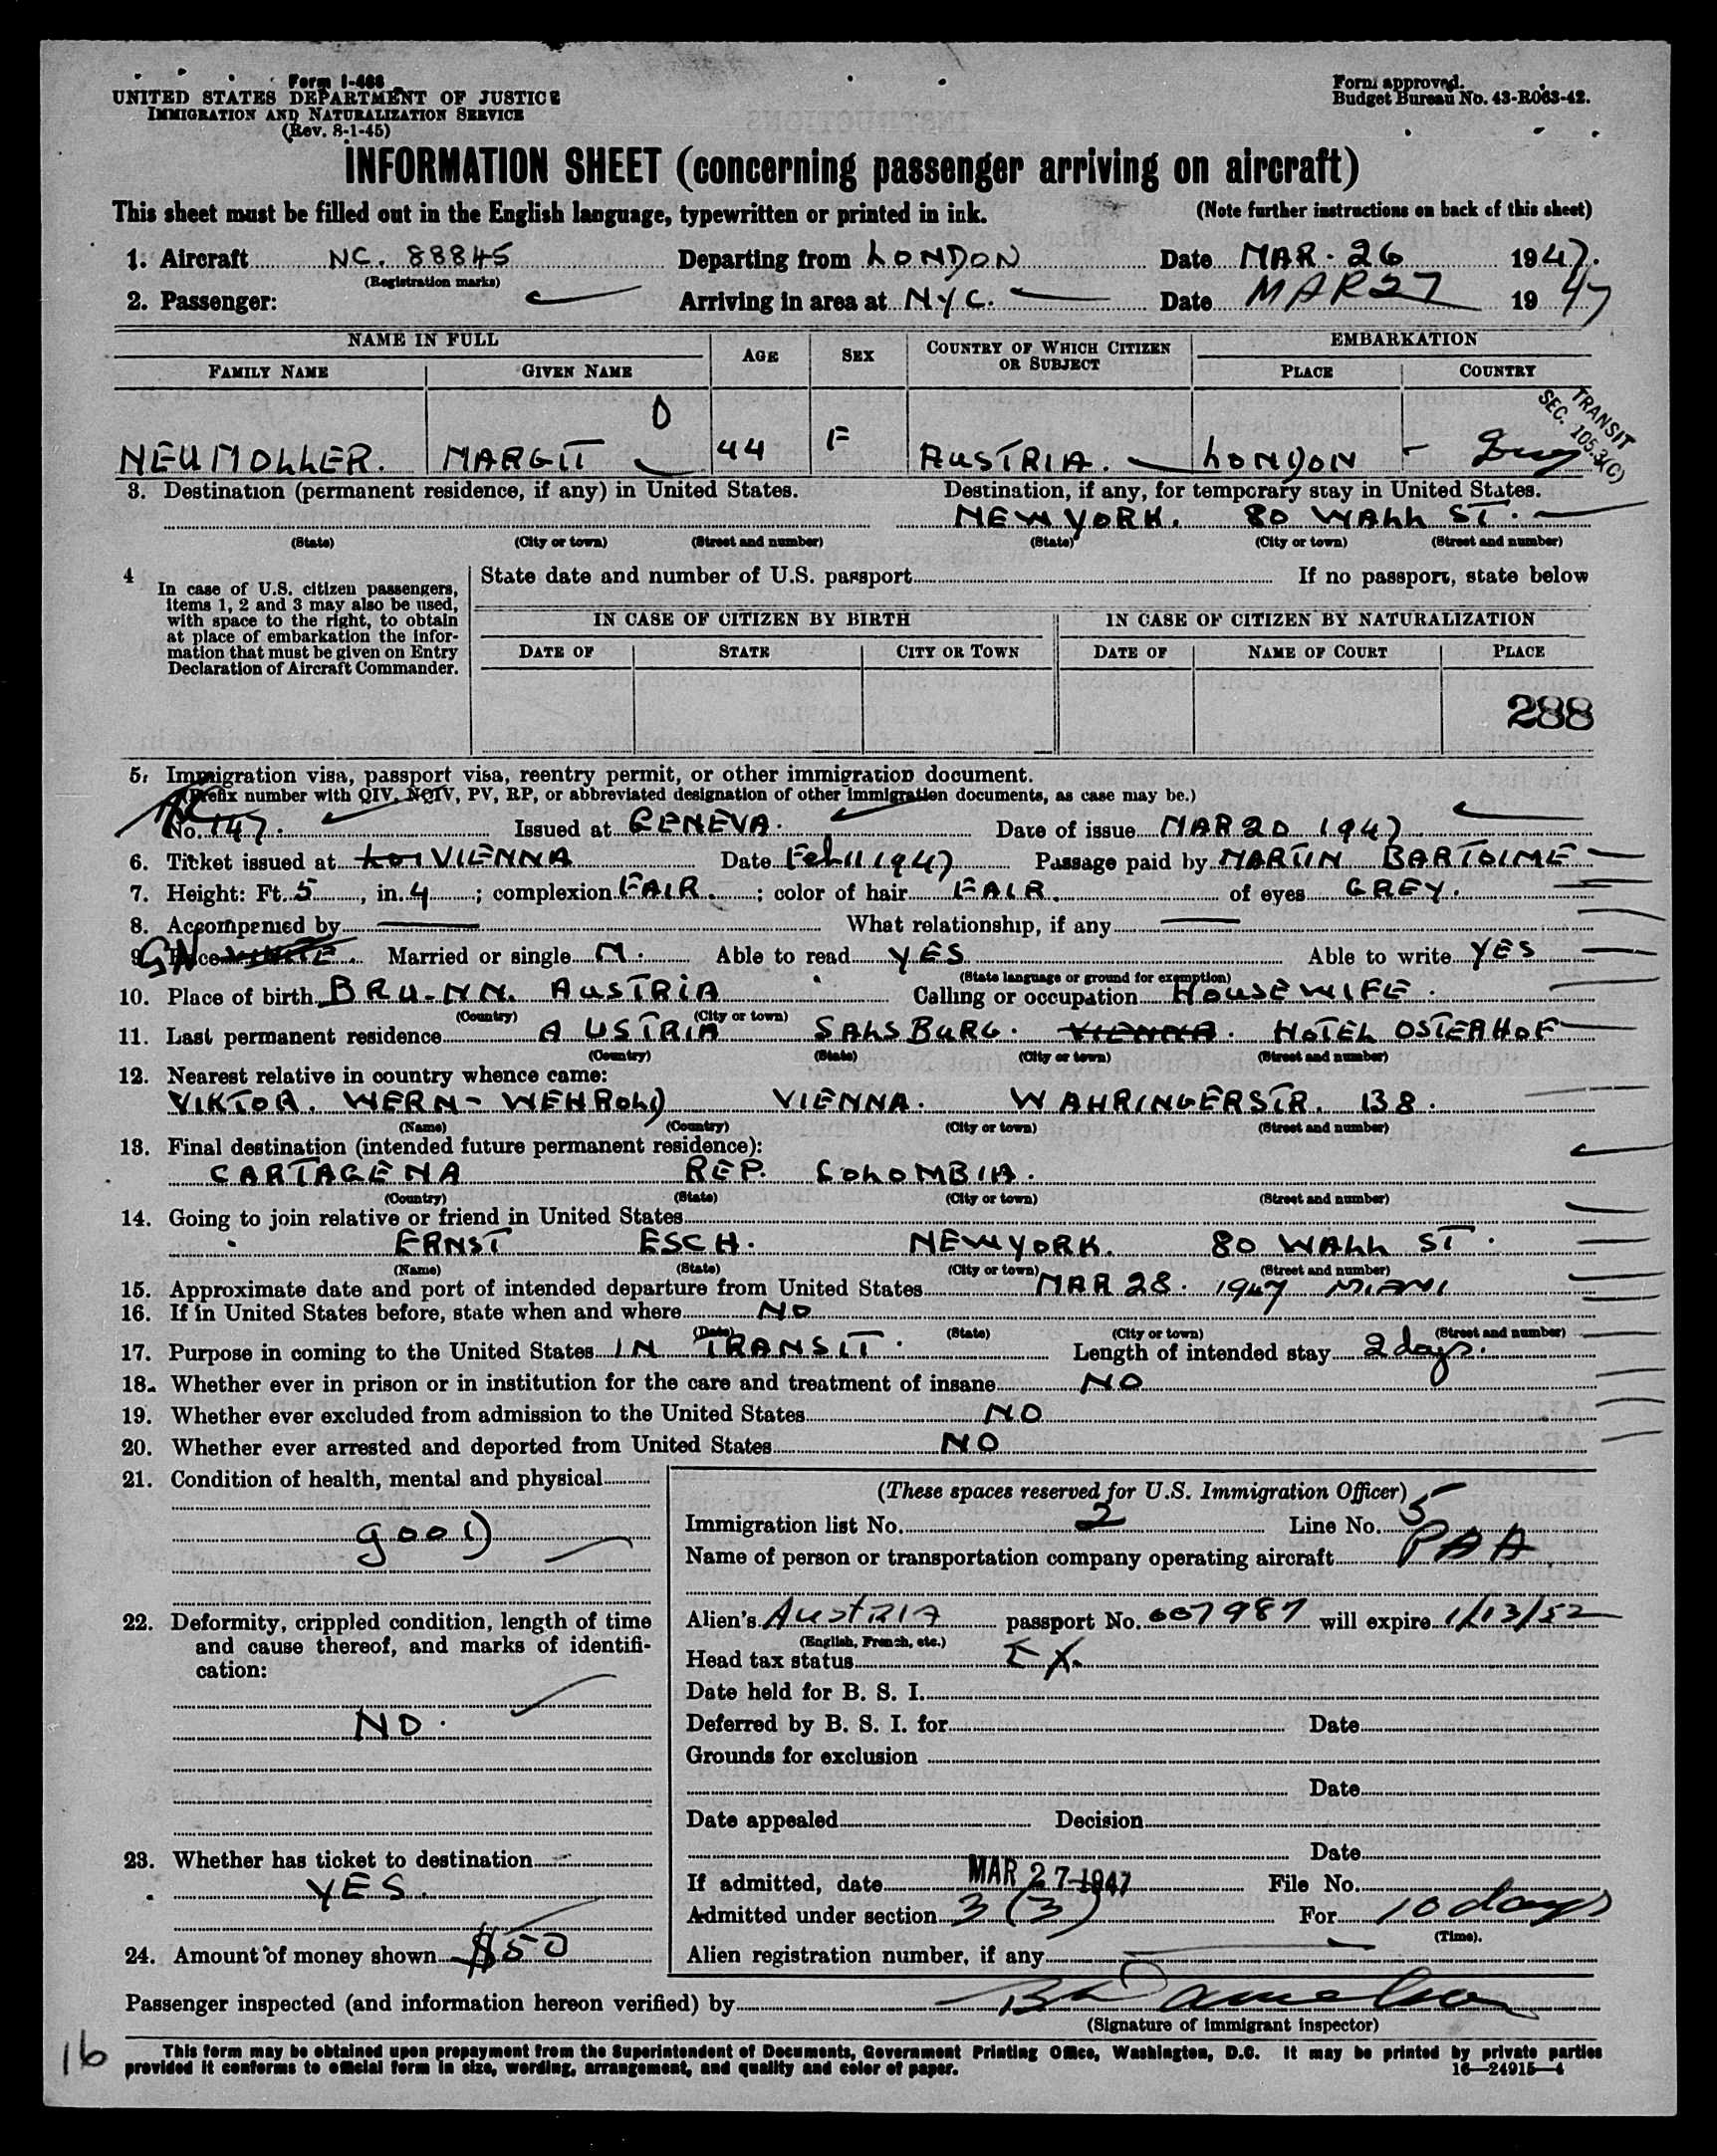 Form I-466
UNITED STATES DEPARTMENT OF JUSTICE
IMMIGRATION AND NATURALIZATION SERVICE
(Rev. 8-1-45)
Form approved.
Budget Bureau No. 43-R063-42.
INFORMATION SHEET (concerning passenger arriving on aircraft)
This sheet must be filled out in the English language, typewritten or printed in ink. (Note further instructions on back of this sheet)
1. Aircraft NC. 88845 Departing from LONDON Date MAR. 26 1947.
(Registration marks)
2. Passenger: Arriving in area at N.Y.C. Date MAR 27 1947
NAME IN FULL AGE SEX COUNTRY OF WHICH CITIZEN OR SUBJECT EMBARKATION
FAMILY NAME GIVEN NAME PLACE COUNTRY
TRANSIT
SEC. 105.3(C)
NEUMOLLER. MARGIT 44 F AUSTRIA. LONDON
3. Destination (permanent residence, if any) in United States. Destination, if any, for temporary stay in United States.
NEW YORK. 80 WALL ST.
(State) (City or town) (Street and number) (State) (City or town) (Street and number)
4 In case of U.S. citizen passengers, items 1, 2 and 3 may also be used, with space to the right, to obtain at place of embarkation the information that must be given on Entry Declaration of Aircraft Commander.
State date and number of U.S. passport If no passport, state below
IN CASE OF CITIZEN BY BIRTH IN CASE OF CITIZEN BY NATURALIZATION
DATE OF STATE CITY OR TOWN DATE OF NAME OF COURT PLACE
288
5. Immigration visa, passport visa, reentry permit, or other immigration document.
(Prefix number with QIV, NQIV, PV, RP, or abbreviated designation of other immigration documents, as case may be.)
No. 147. Issued at GENEVA. Date of issue MAR 20 1947
6. Ticket issued at VIENNA Date Feb 11 1947 Passage paid by MARTIN BARTOLME
7. Height: Ft. 5, in. 4; complexion FAIR.; color of hair FAIR. of eyes GREY.
8. Accompanied by What relationship, if any
9. Race WHITE. Married or single M. Able to read YES Able to write YES
(State language or ground for exemption)
10. Place of birth BRU-NN. AUSTRIA Calling or occupation HOUSEWIFE.
(Country) (City or town)
11. Last permanent residence AUSTRIA SALSBURG. VIENNA. HOTEL OSTERHOF
(Country) (State) (City or town) (Street and number)
12. Nearest relative in country whence came:
VIKTOR. WERN-WEHROLD VIENNA. WAHRINGERSTR. 138.
(Name) (Country) (City or town) (Street and number)
13. Final destination (intended future permanent residence):
CARTAGENA REP. COLOMBIA.
(Country) (State) (City or town) (Street and number)
14. Going to join relative or friend in United States
ERNST ESCH. NEW YORK. 80 WALL ST.
(Name) (State) (City or town) (Street and number)
15. Approximate date and port of intended departure from United States MAR 28. 1947 MIAMI
16. If in United States before, state when and where NO
(Date) (State) (City or town) (Street and number)
17. Purpose in coming to the United States IN TRANSIT. Length of intended stay 2 days.
18. Whether ever in prison or in institution for the care and treatment of insane NO
19. Whether ever excluded from admission to the United States NO
20. Whether ever arrested and deported from United States NO
21. Condition of health, mental and physical
good
22. Deformity, crippled condition, length of time and cause thereof, and marks of identification:
NO.
23. Whether has ticket to destination
YES.
24. Amount of money shown $50
(These spaces reserved for U.S. Immigration Officer)
Immigration list No. 2 Line No. 5
Name of person or transportation company operating aircraft PAA
Alien's AUSTRIA passport No. 007987 will expire 1/13/52
(English, French, etc.)
Head tax status EX.
Date held for B. S. I.
Deferred by B. S. I. for Date
Grounds for exclusion
Date
Date appealed Decision
Date
If admitted, date MAR 27 1947 File No.
Admitted under section 3 (3) For 10 days
(Time).
Alien registration number, if any
Passenger inspected (and information hereon verified) by
(Signature of immigrant inspector)
16
This form may be obtained upon prepayment from the Superintendent of Documents, Government Printing Office, Washington, D.C. It may be printed by private parties
provided it conforms to official form in size, wording, arrangement, and quality and color of paper. 16—24915-4